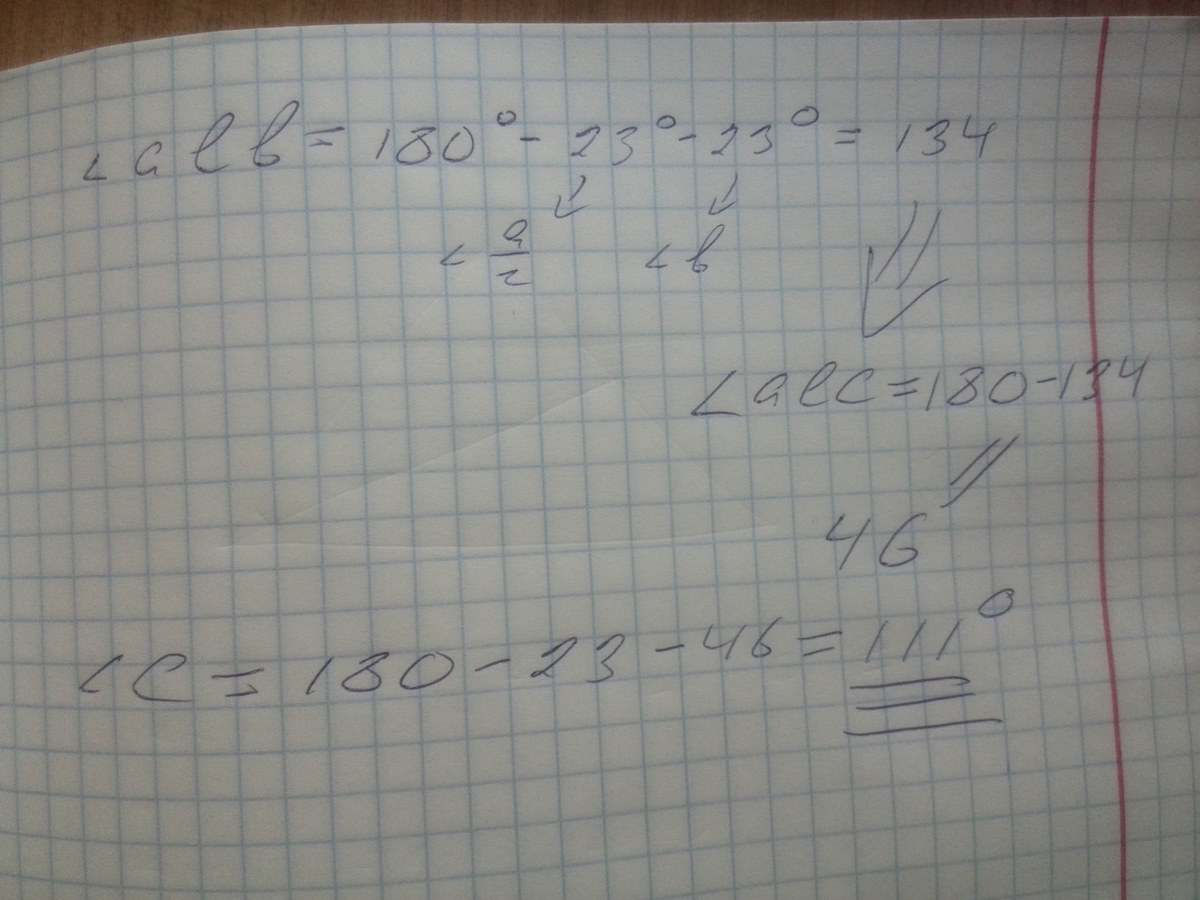 ∠alb = 180° - 23° - 23° = 134
∠ a/2 ∠b
∠alc = 180 - 134
46
∠C = 180 - 23 - 46 = 111°